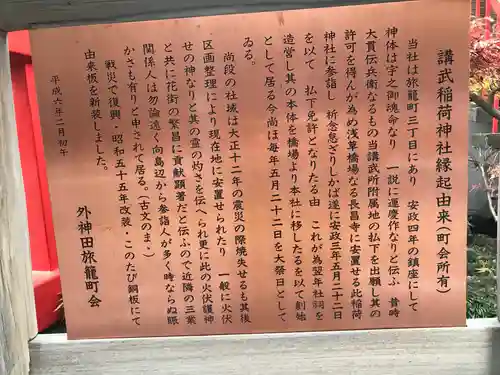 講武稲荷神社縁起由来(町会所有)
当社は旅籠町三丁目にあり 安政四年の鎮座にして
神体は宇之御魂命なり 一説に運慶作なりと伝ふ 昔時
大貫伝兵衛なるもの当講武所附属地の払下を出願し其の
許可を得んが為め浅草橋場なる長昌寺に安置せる此稲荷
神社に参詣し 祈念怠ざりしかば遂に安政三年五月二十二日
を以て 払下免許となりたる由 これが為翌年社祠を
造営し其の本体を橋場より本社に移したるを以て創始
として居る今尚ほ毎年五月二十二日を大祭日として
ゐる。
尚段の社域は大正十二年の震災の際焼失せるも其後
区画整理により現在地に安置せられたり 一般に火伏
せの神なりと其の霊の灼さを伝へられ更に此の火伏護神
と共に花街の繁昌に貢献顕著だと伝ふので近隣の三業
関係人は勿論遠く向島辺から参詣人が多く時ならぬ賑
かさも有りと申されて居る。(古文のま・)
戦災で復興・昭和五十五年改装・このたび銅板にて
由来板を新装しました。
平成六年二月初午
外神田旅籠町会